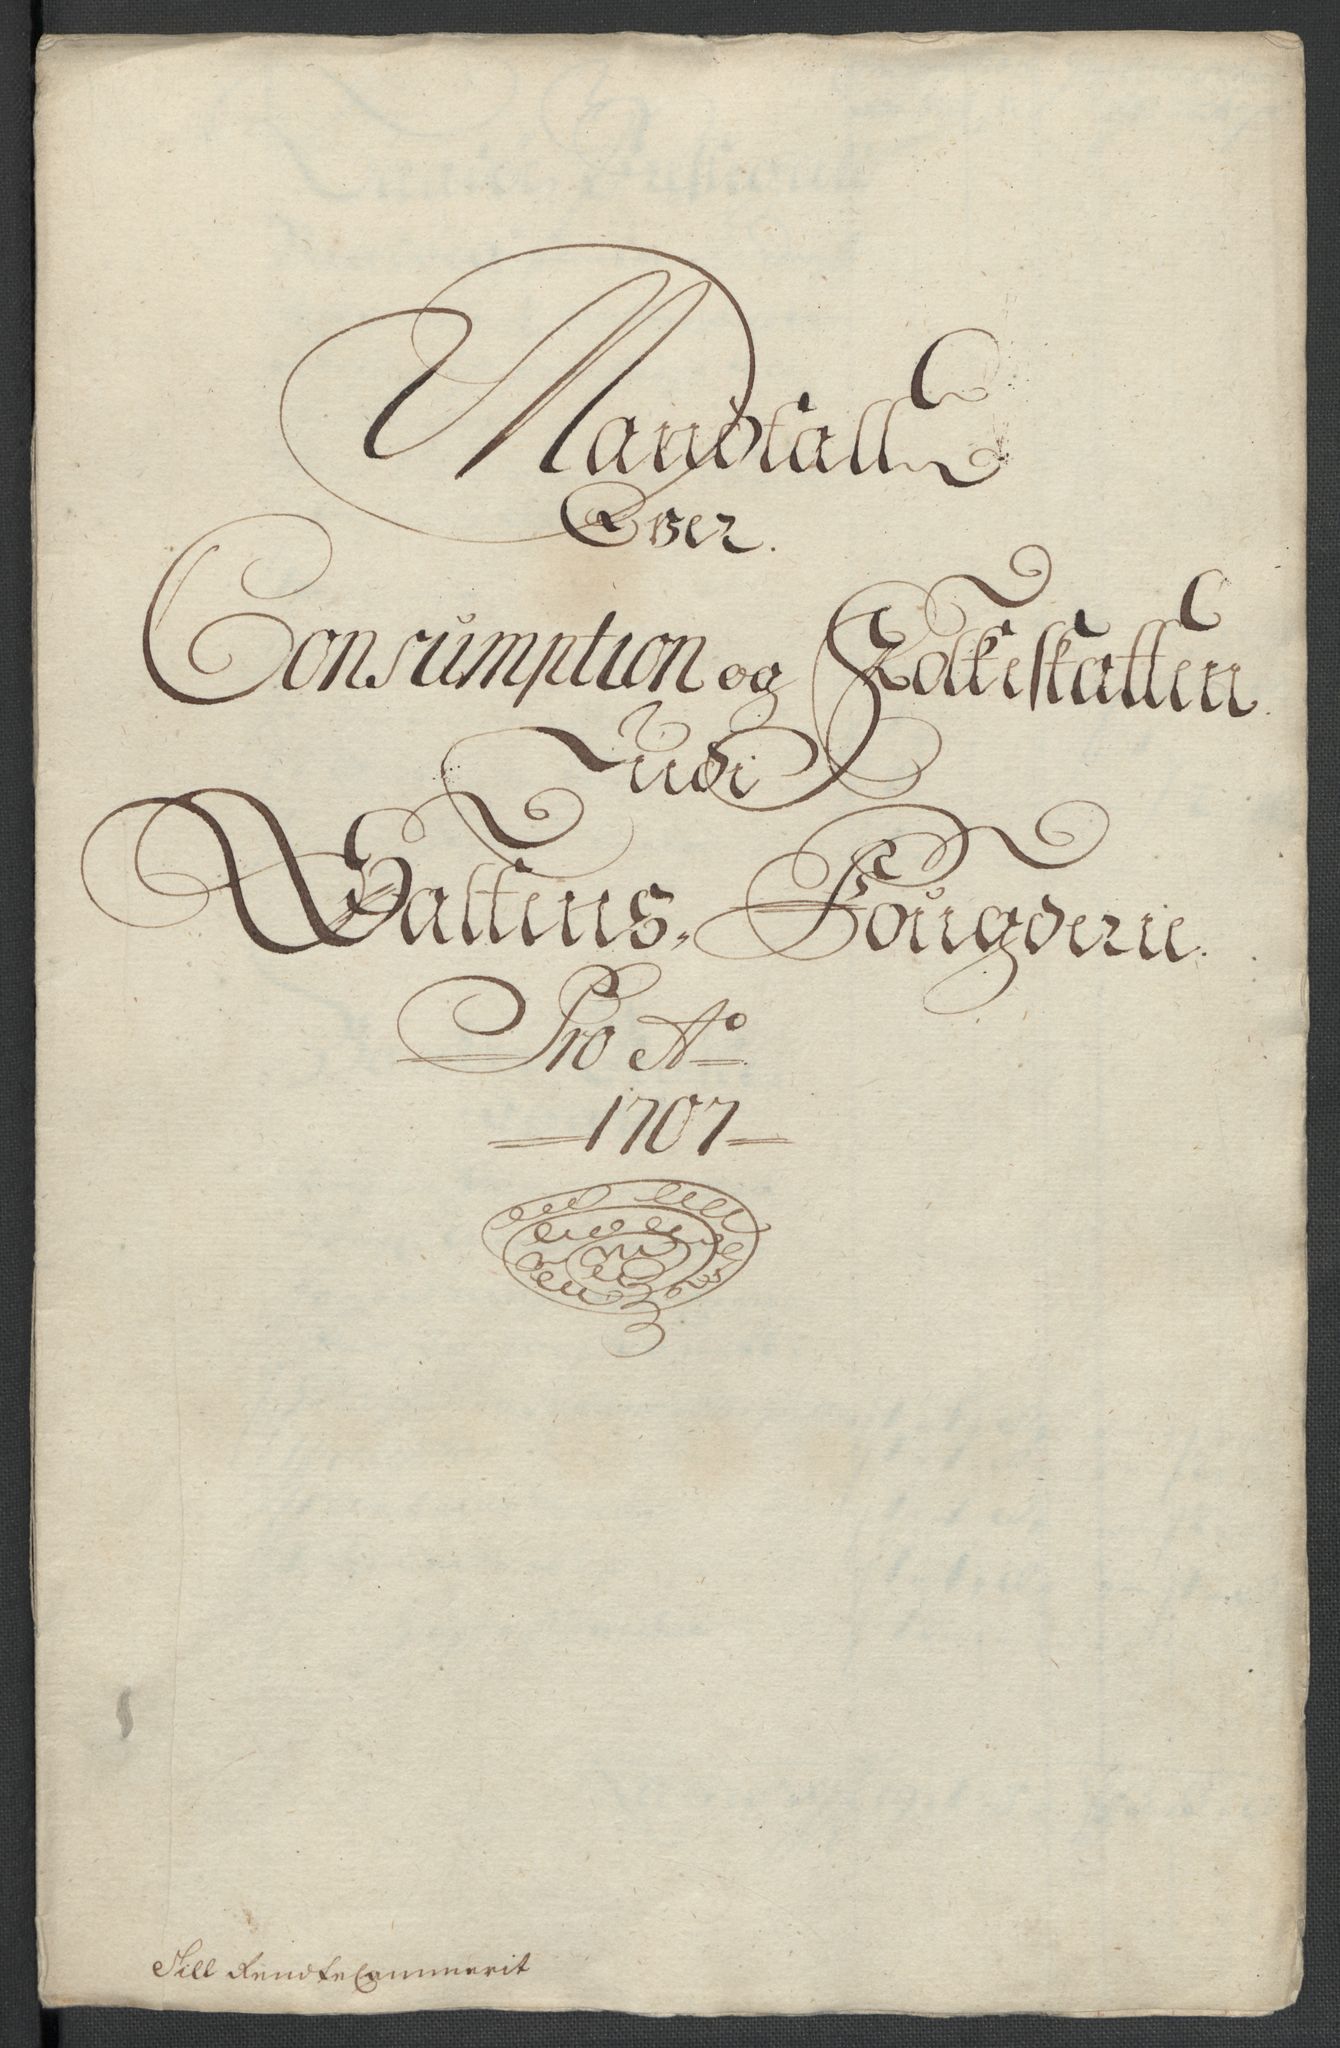 Mandtall
Over.
Consumption og Folkeskatten
Udi
Saltens, Fougderie.
Pro Ao
1707
Till RendteCammerit